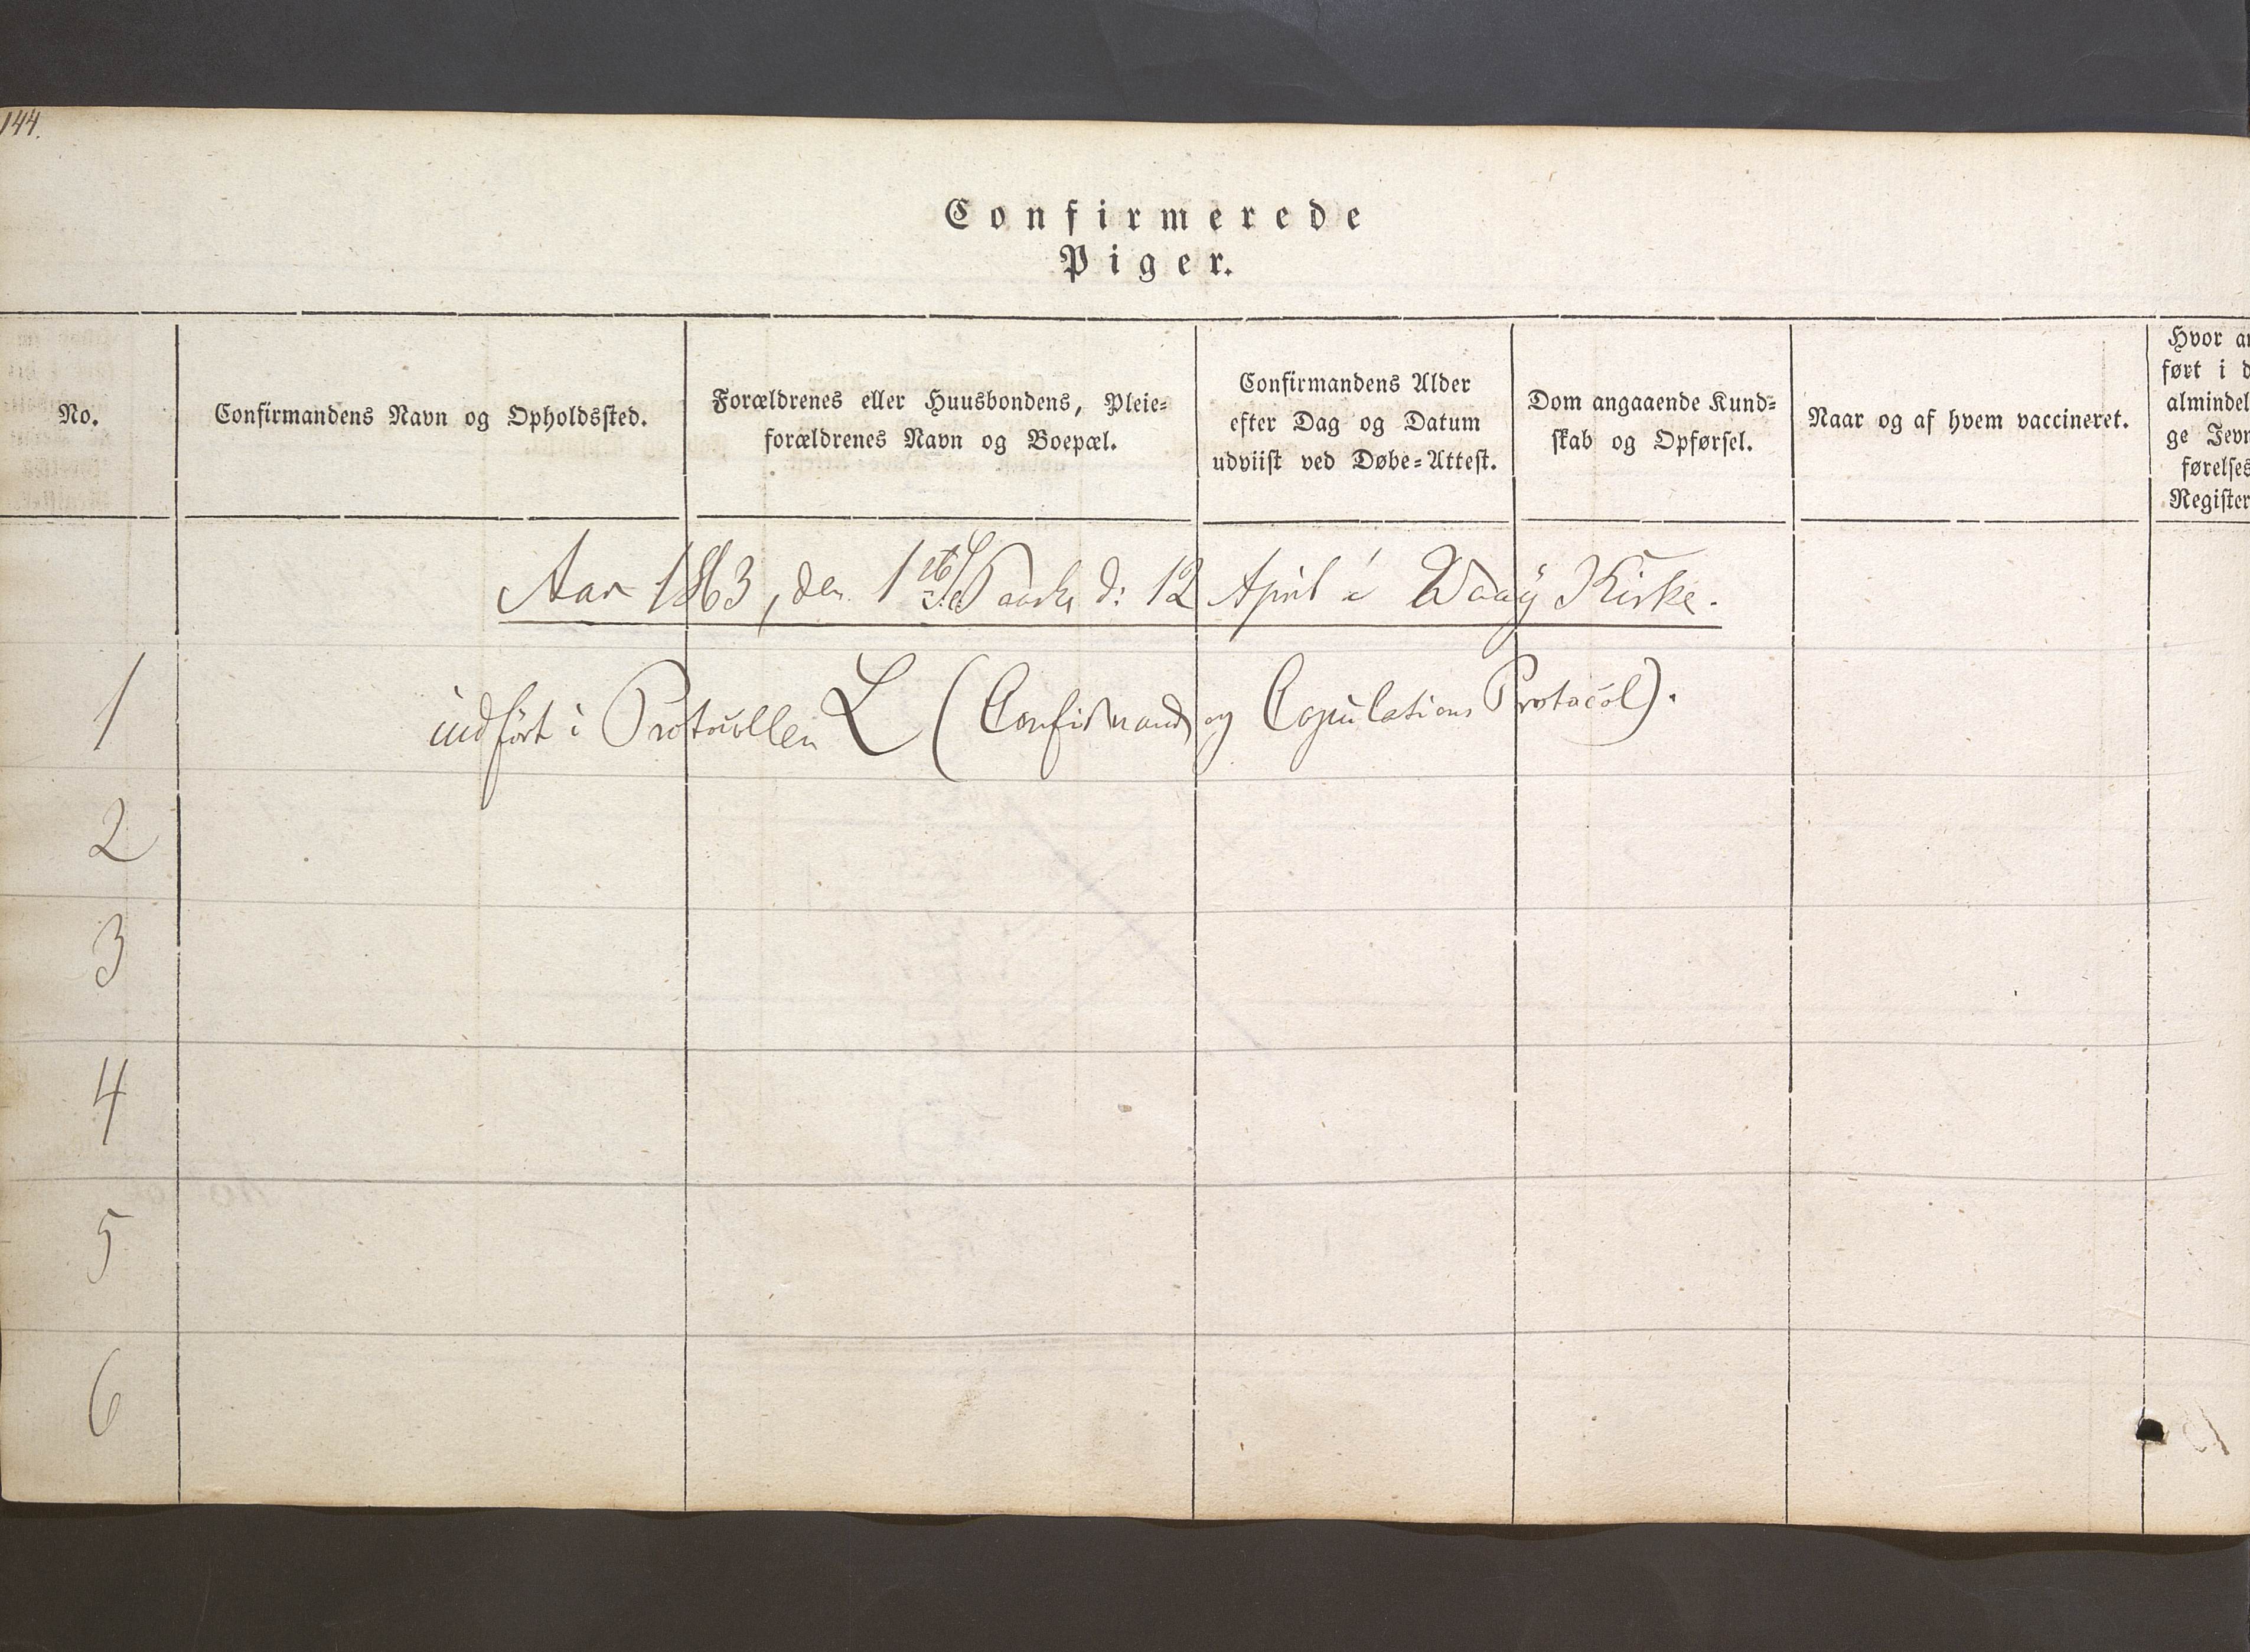 144.
Confirmerede
Piger.
No.
Confirmandens Navn og Opholdssted.
Forældrenes eller Huusbondens, Pleie-
forældrenes Navn og Boepæl.
Confirmandens Alder
efter Dag og Datum
udviist ved Døbe-Attest.
Dom angaaende Kund-
skab og Opførsel.
Naar og af hvem vaccineret.
Hvor an
ført i d
almindel
ge Jevn
førelses
Register
Aar 1863, den 1ste S. e. Paaske d: 12 April i Waaÿ Kirke.
1
indført i Protocollen L (Confirmand og Copulations Protocol).
2
3
4
5
6